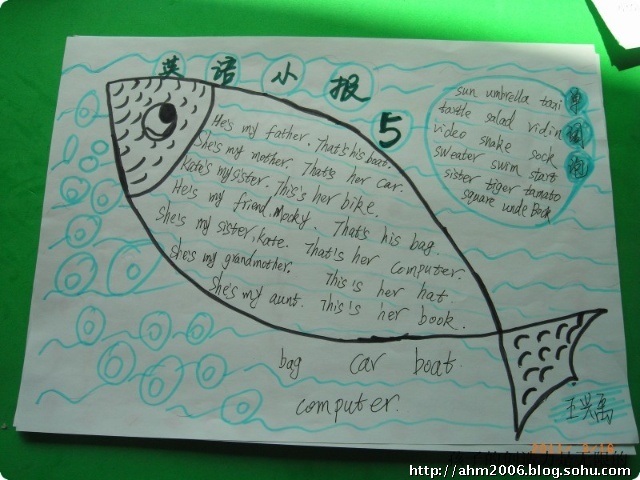 英语小报
5
He's my father. That's his boat.
She's my mother. That's her car.
Kate's my sister. This's her bike.
He's my friend, Mocky. That's his bag
She's my sister, kate. That's her computer.
She's my grandmother. This is her hat.
She's my aunt. This is her book.
sun umbrella taxi
tastle salad vidin
video snake sock
sweater swim start
sister tiger tamato
square unde Book
单词泡
bag car boat.
computer.
王兴禹
http://ahm2006.blog.sohu.com